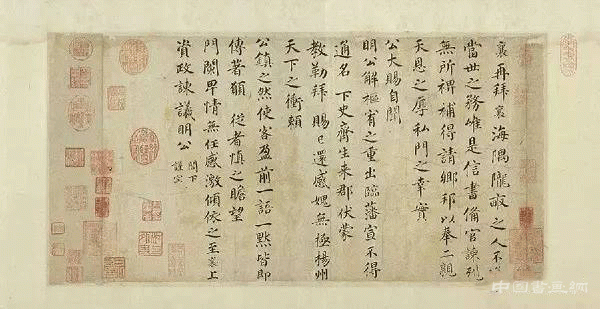 襄再拜襄海隅隴畝之人不通
當世之務唯是信書備官諫列
無所裨補得請鄉邦以奉二親
天恩之厚私門之幸實
公大賜自聞
明公解樞宥之重出臨藩宣不得
通名下史齊生來郡伏蒙
教勒拜賜已還感愧無極楊州
天下之衝賴
公鎮之然使客盈前一語一默皆即
傳著願從者慎之瞻望
門闌卑情無任感激傾依之至襄上
資政諫議明公閤下
謹空
中国書画網